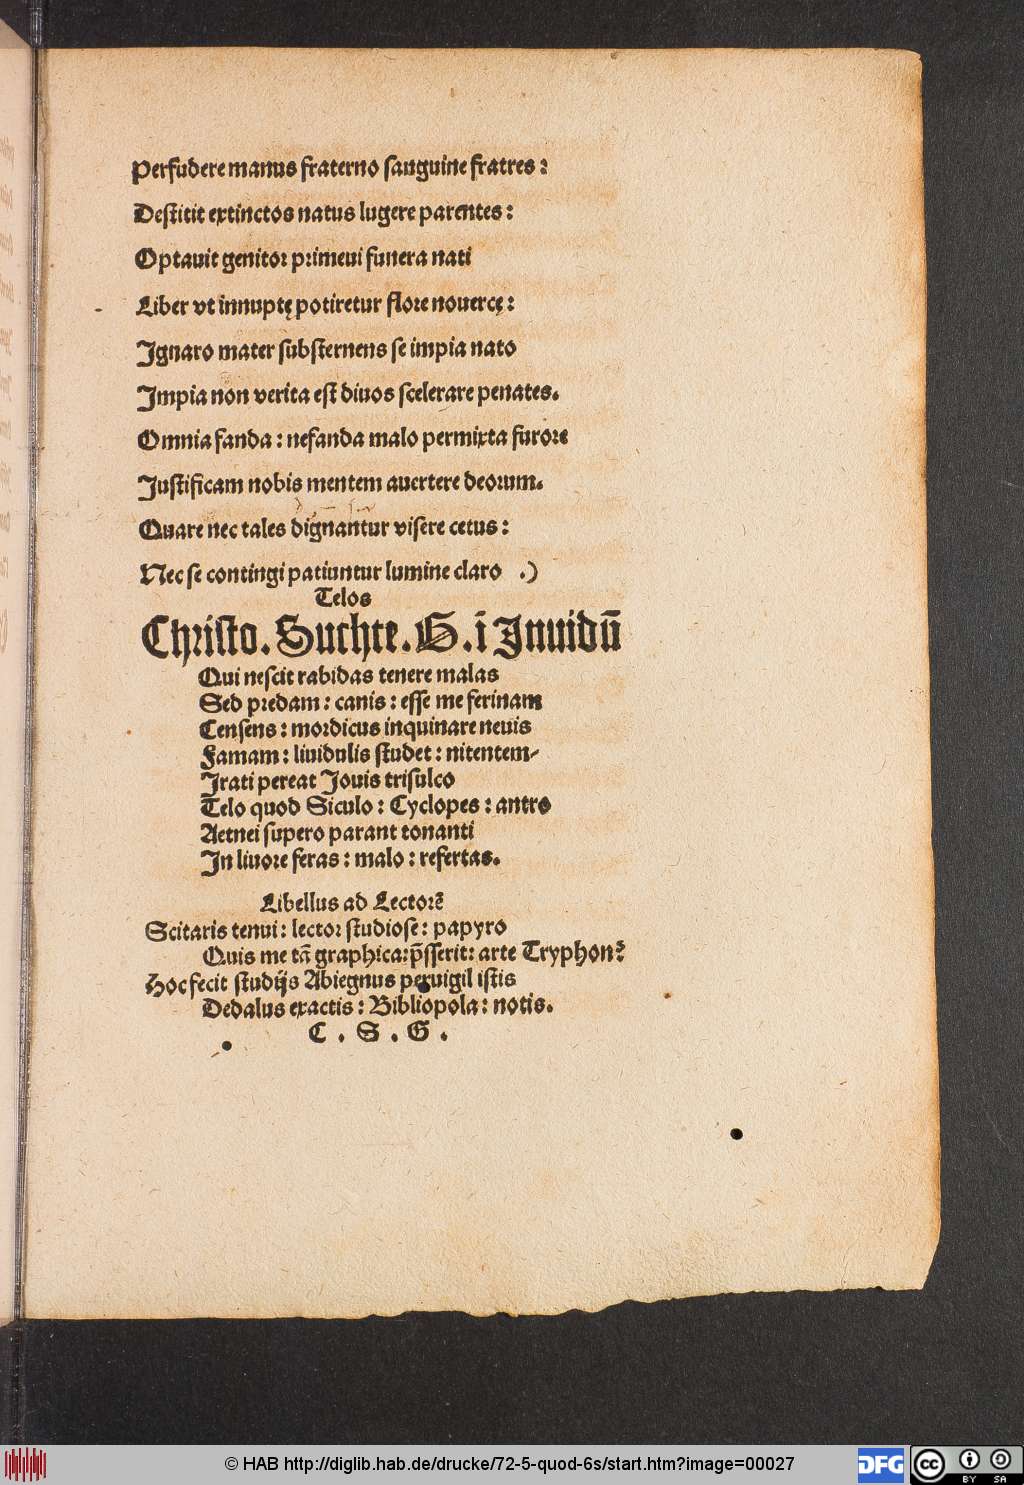 Perfudere manus fraterno sanguine fratres:
Destitit extinctos natus lugere parentes:
Optauit genitor primeui funera nati
Liber vt innuptę potiretur flore nouercę:
Ignaro mater substernens se impia nato
Impia non verita est diuos scelerare penates.
Omnia fanda: nefanda malo permixta furore
Justificam nobis mentem auertere deorum.
Quare nec tales dignantur visere cetus:
Nec se contingi patiuntur lumine claro .)
Telos
Christo. Suchte. G. ī Inuidū
Qui nescit rabidas tenere malas
Sed predam: canis: esse me ferinam
Censens: mordicus inquinare neuis
Famam: liuidulis studet: nitentem-
Irati pereat Jouis trisulco
Telo quod Siculo: Cyclopes: antro
Aetnei supero parant tonanti
In liuore feras: malo: refertas.
Libellus ad Lectorē
Scitaris tenui: lector studiose: papyro
Quis me tā graphica: p̄sserit: arte Tryphon?
Hoc fecit studijs Abiegnus peruigil istis
Dedalus exactis: Bibliopola: notis.
C. S. G.
© HAB http://diglib.hab.de/drucke/72-5-quod-6s/start.htm?image=00027
DFG
cc BY SA